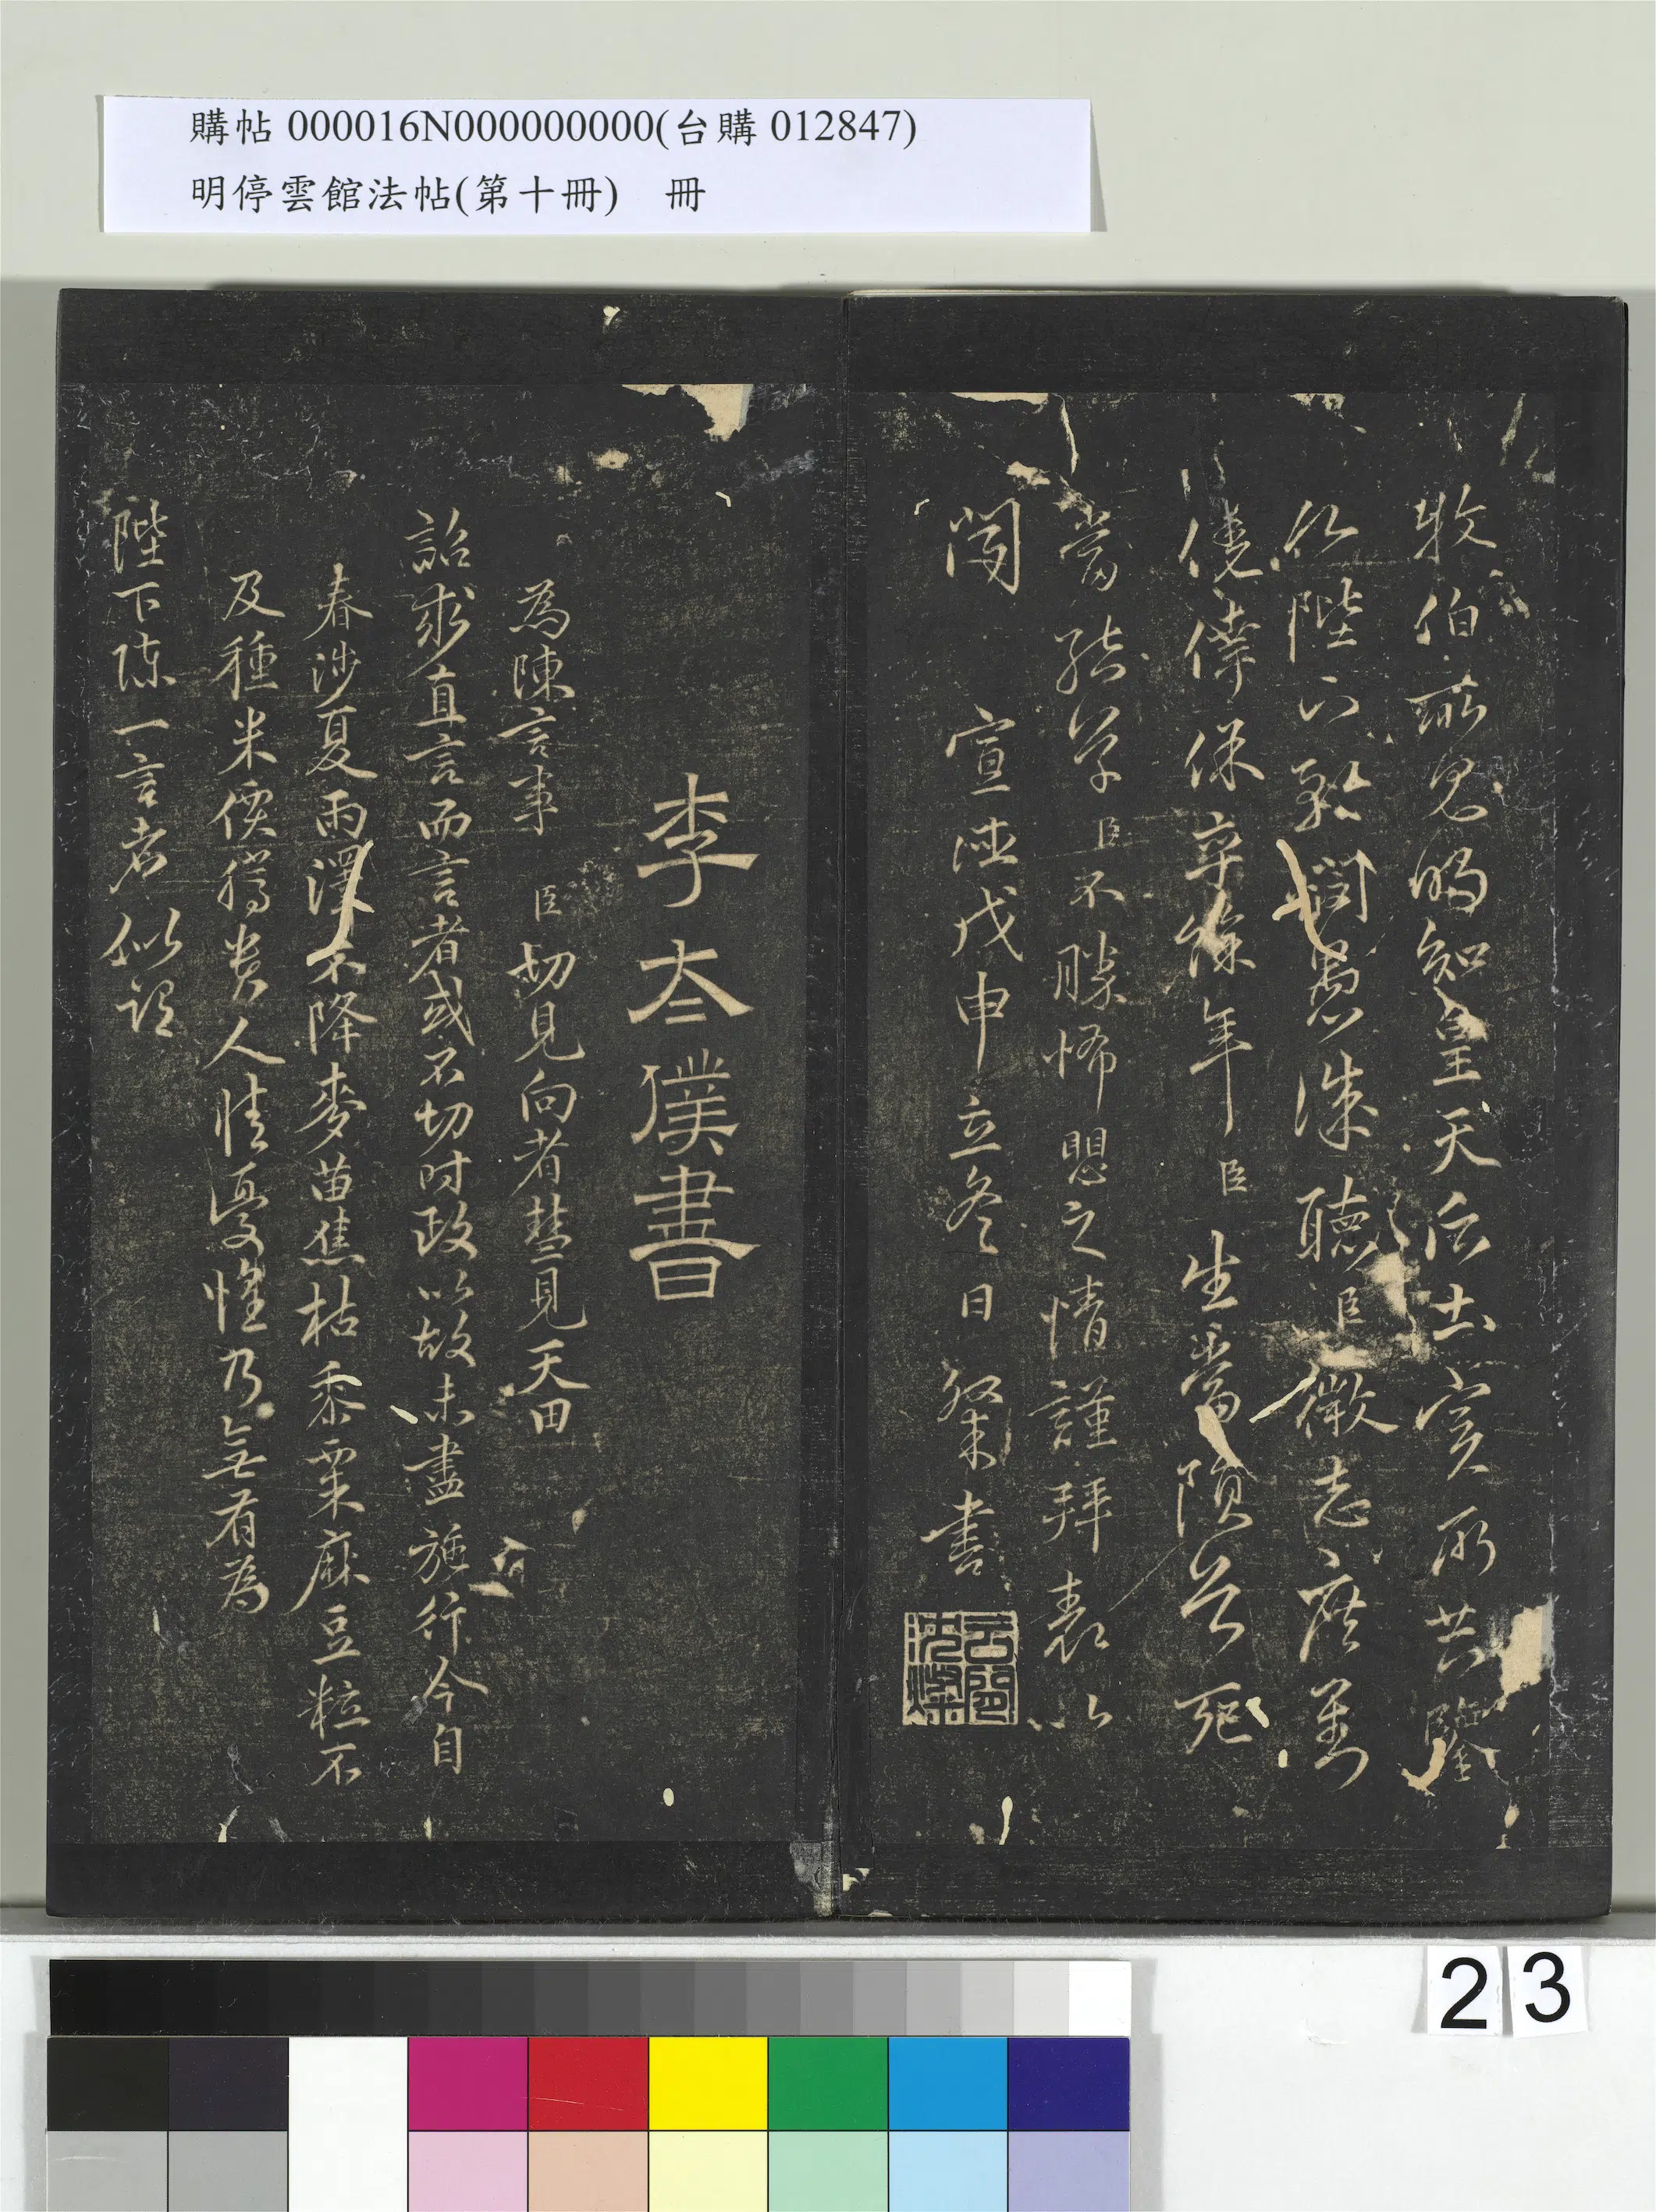 購帖 000016N000000000(台購 012847)
明停雲館法帖(第十冊) 冊
牧伯所見明知皇天后土實所共鑒
伏陛下矜閔愚誠聽臣微志庶劉
僥倖保卒餘年臣生當隕首死
當結草臣不勝怖懼之情謹拜表以
聞 宣德戊申立冬日 粲書
李太僕書
為陳言事 臣切見向者彗見天田
詔求直言而言者或不切時政以故未盡施行今自
春涉夏雨澤不降麥苗焦枯黍粟麻豆粒不
及種米價騰貴人情憂惶乃無有為
陛下陳一言者似詔
23